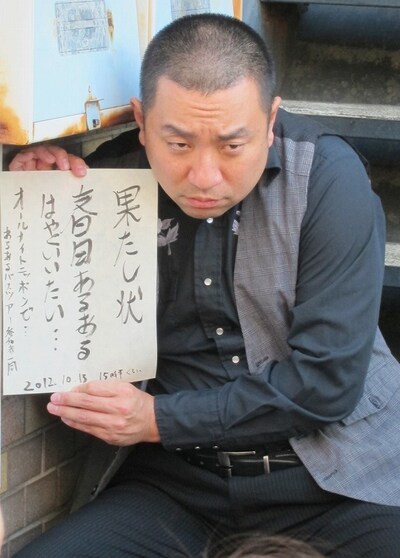 果たし状
あるある
はやくいいたい…
オールナイトニッポンで…
あるあるバスツアー参加者一同
2012.10.13 15時半くらい